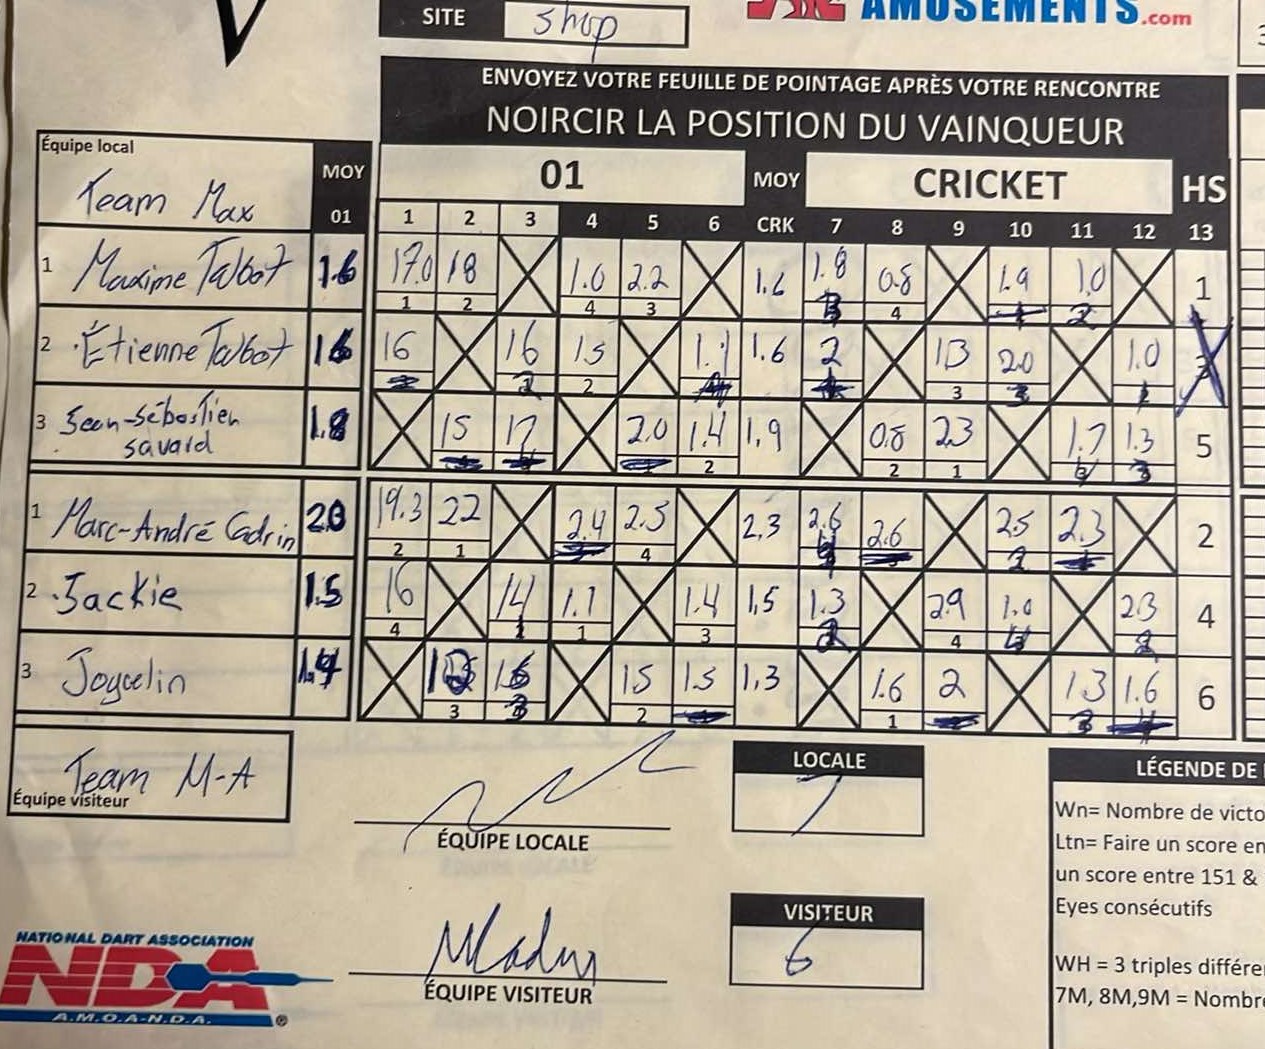 SITE
Shop
AMUSEMENTS.com
ENVOYEZ VOTRE FEUILLE DE POINTAGE APRÈS VOTRE RENCONTRE
NOIRCIR LA POSITION DU VAINQUEUR
Équipe local
Team Max
MOY 01 MOY CRICKET HS
01 1 2 3 4 5 6 CRK 7 8 9 10 11 12 13
1 Maxime Talbot 1.6 17.0 18 1.0 2.2 1.6 1.8 0.8 1.9 1.0 1
1 2 4 3 4
2 Étienne Talbot 16 16 1.5 1.6 2 13 20 1.0
2 3
3 Jean-Sébastien savard 1.8 15 17 2.0 1.4 1,9 0.8 23 1.7 1.3 5
2 2 1
1 Marc-André Cadrin 20 19.3 22 2.4 2.5 2,3 2.6 2.6 25 2.3 2
2 1 4
2 Jackie 1.5 16 14 1.1 1.4 1,5 1.3 29 1.0 23 4
4 1 3 4
3 Joycelin 15 1.5 1,3 1.6 2 13 1.6 6
3 2 1
Team M-A
Équipe visiteur
ÉQUIPE LOCALE
LOCALE
7
ÉQUIPE VISITEUR
VISITEUR
6
LÉGENDE DE
Wn= Nombre de victo
Ltn= Faire un score en
un score entre 151 &
Eyes consécutifs
WH = 3 triples différe
7M, 8M,9M = Nombre
NATIONAL DART ASSOCIATION
NDA
A.M.O.A-N.D.A. ®